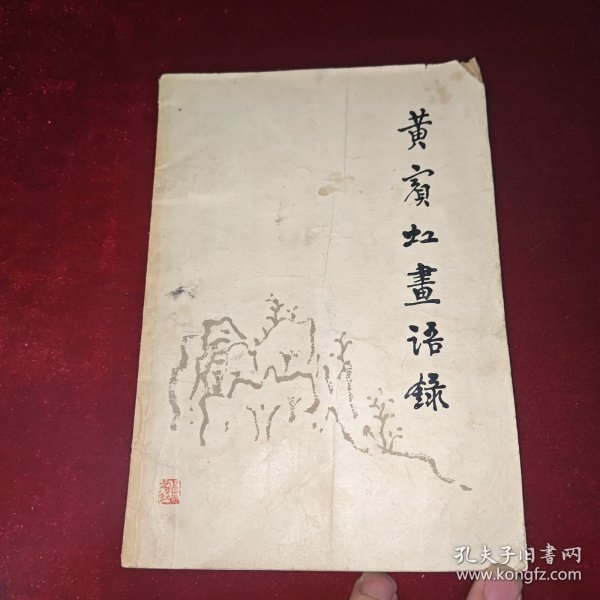 黄賓虹畫语錄
孔夫子旧書网
www.kongfz.com